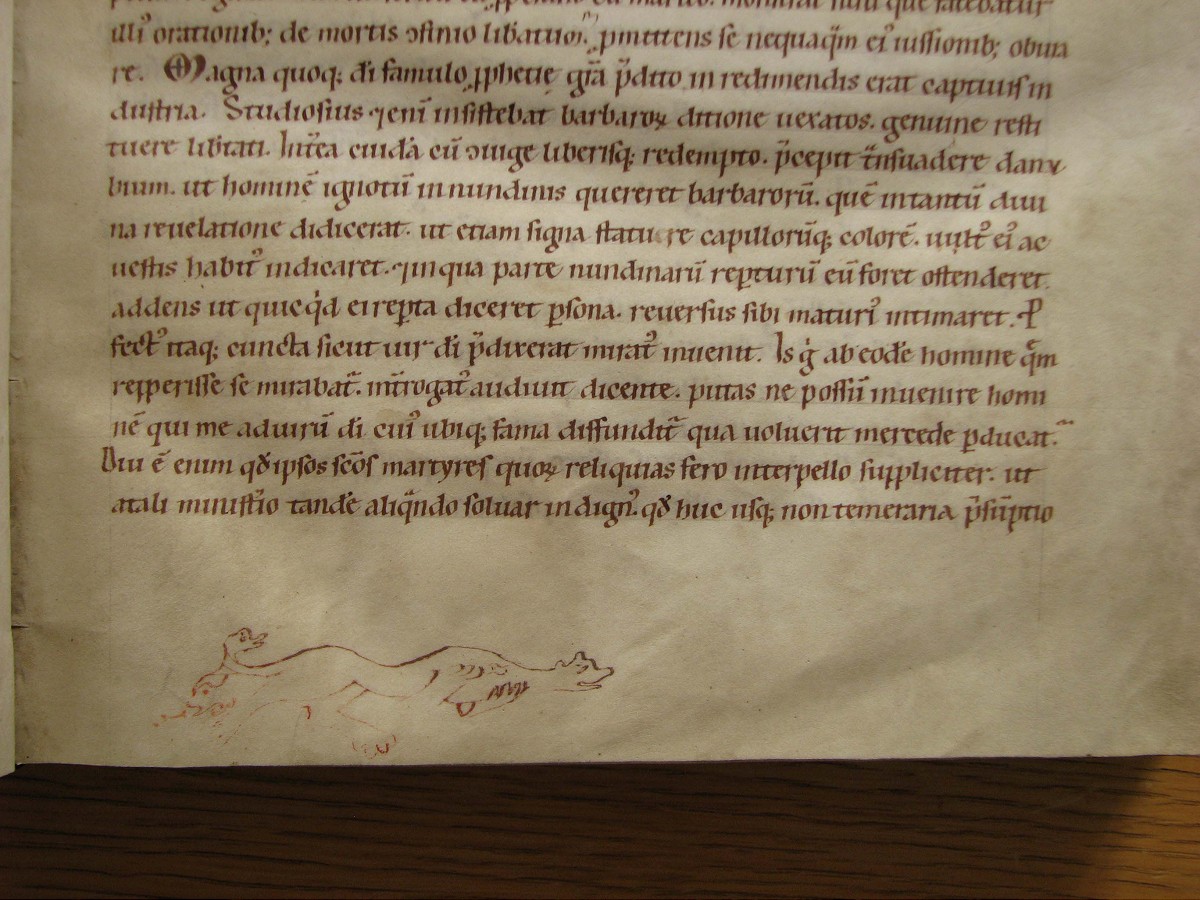 illi᷒ orationib; de mortis ɔfinio libatur. pmittens se nequaq̄m ei᷒ iussionib; obuia
re. Magna quoq; dī famulo ꝓphetię grā p̄dito in redimendis erat captiuis in
dustria. Studiosius ⁊ enī insistebat barbaroꝝ ditione uexatos. genuine resti
tuere lib̄tati. Int̄ea cuidā cū ɔiuge liberisq; redempto. p̄cepit t̄nsuadere danu
bium. ut hominē ignotū in nundinis quereret barbarorū. quē in tantū diui
na reuelatione didicerat. ut etiam signa statu re capillorūq; colorē. uult᷒ ei᷒ ac
uestis habit᷒ indicaret. ⁊ in qua parte nundinarū reꝑturū eū foret ostenderet.
addens ut quicq̇d ei reꝑta diceret ꝑsona. reuersus sibi maturi᷒ intimaret. P̄
fect᷒ itaq; cuncta sicut uir dī p̄dixerat mirat᷒ inuenit. Is ġ ab eodē homine q̄m
repperisse se mirabat᷒. int̄rogat᷒ audiuit dicente. putas ne possū inuenire homi
nē qui me ad uirū dī cui᷒ ubiq; fama diffundit᷒ qua uoluerit mercede ꝑducat.
Diu ē enim qđ ipsos scōs martyres quoꝝ reliquias fero interpello suppliciter. ut
a tali minist̄io tandē aliq̄ndo soluar indign᷒. qđ huc usq; non temeraria p̄sūptio